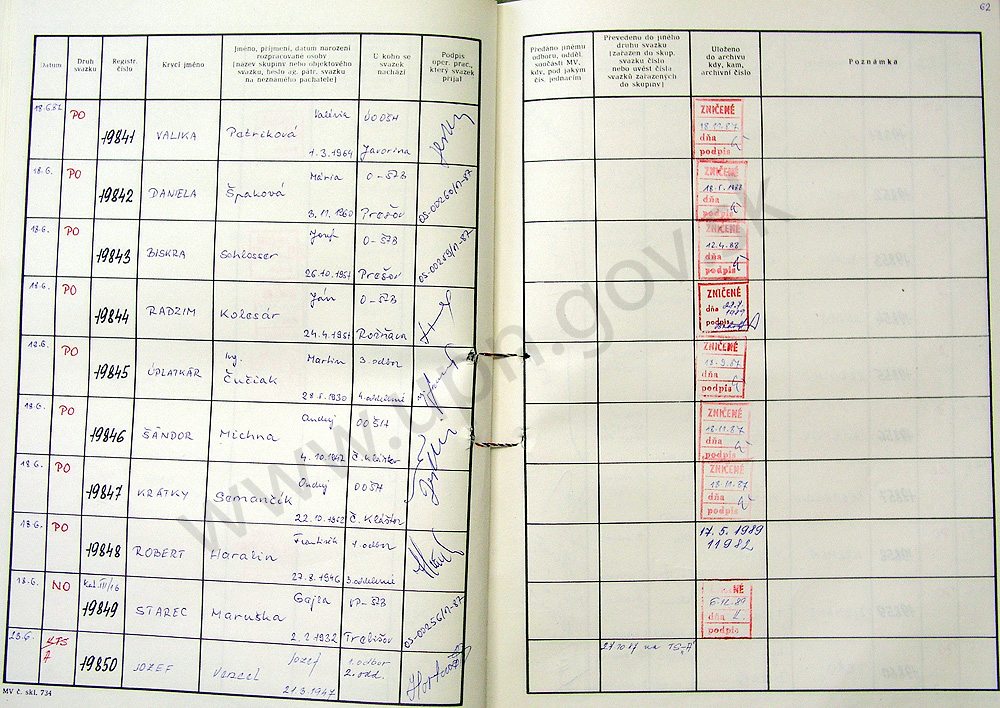 62
Datum
Druh svazku
Registr. číslo
Krycí jméno
Jméno, příjmení, datum narození
rozpracované osoby
[název skupiny nebo objektového
svazku, heslo ag. pátr. svazku
na neznámého pachatele]
U koho se
svazek
nachází
Podpis
oper. prac.,
který svazek
přijal
Předáno jinému
odboru, odděl.
součásti MV,
kdy, pod jakým
čís. jednacím
Převedeno do jiného
druhu svazku
[zařazen do skup.
svazku číslo
nebo uvést čísla
svazků zařazených
do skupiny]
Uloženo
do archivu
kdy, kam,
archivní číslo
Poznámka
18.6.87 PO 19841 VALIKA Patríková Valéria 1.3.1964 OOŠH Javorina
ZNIČENÉ
18.11.87
dňa
podpis
18.6. PO 19842 DANIELA Špaková Mária 3.11.1960 O-ŠTB Prešov OS-00260/N-87
ZNIČENÉ
dňa
podpis
18.6. PO 19843 BISKRA Schlosser Jozef 26.10.1951 O-ŠTB Prešov
ZNIČENÉ
12.4.88
dňa
podpis
18.6. PO 19844 RADZIM Kolesár Ján 24.4.1951 O-ŠTB Rožňava
ZNIČENÉ
dňa
podpis
18.6. PO 19845 ÚPLATKÁR Ing. Čučiak Martin 28.5.1930 3.odbor 4.oddelenie
ZNIČENÉ
dňa
podpis
18.6. PO 19846 ŠÁNDOR Michna Ondrej 4.10.1942 OOŠH Č.Kláštor
ZNIČENÉ
18.11.87
dňa
podpis
18.6. PO 19847 KRÁTKY Semančík Ondrej 22.10.1952 OOŠH Č.Kláštor
ZNIČENÉ
18.11.87
dňa
podpis
18.6. PO 19848 ROBERT Harabin František 27.8.1946 1.odbor 3.oddelenie
17.5.1989
11982
18.6. NO 19849 STAREC Maruška Gajza 2.2.1932 Trebišov OS-00256/N-87
NÉ
6.12.89
dňa
podpis
23.6. 19850 JOZEF Jozef 21.3.1947 1.odbor 2.odd.
MV č. skl. 734
www.upn.gov.sk